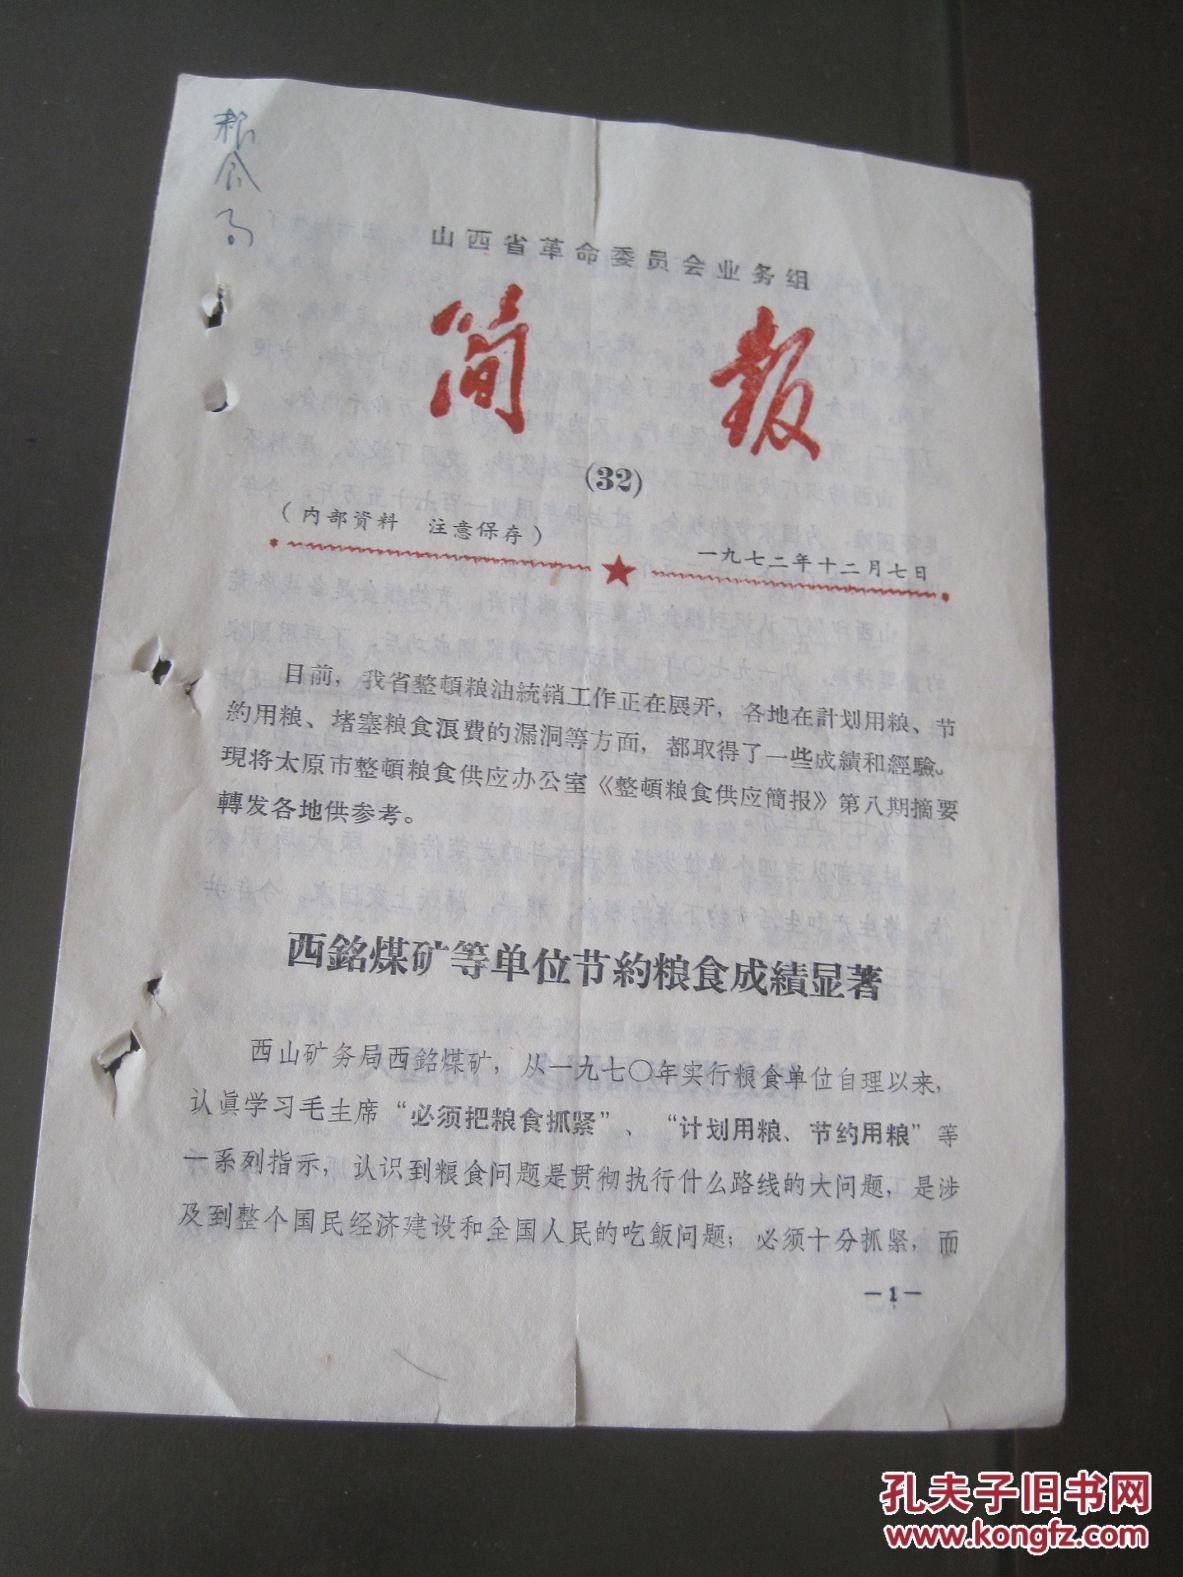 粮食局
山西省革命委员会业务组
简报
(32)
(内部資料 注意保存)
一九七二年十二月七日
目前，我省整頓粮油統销工作正在展开，各地在計划用粮、节
約用粮、堵塞粮食浪費的漏洞等方面，都取得了一些成績和經驗。
現将太原市整頓粮食供应办公室《整頓粮食供应簡报》第八期摘要
轉发各地供参考。
西銘煤矿等单位节約粮食成績显著
西山矿务局西銘煤矿，从一九七〇年实行粮食单位自理以来，
认眞学习毛主席“必须把粮食抓紧”、“计划用粮、节约用粮”等
一系列指示，认识到粮食问题是贯彻执行什么路线的大问题，是涉
及到整个国民经济建设和全国人民的吃飯问题；必须十分抓紧，而
—1—
孔夫子旧书网
www.kongfz.com